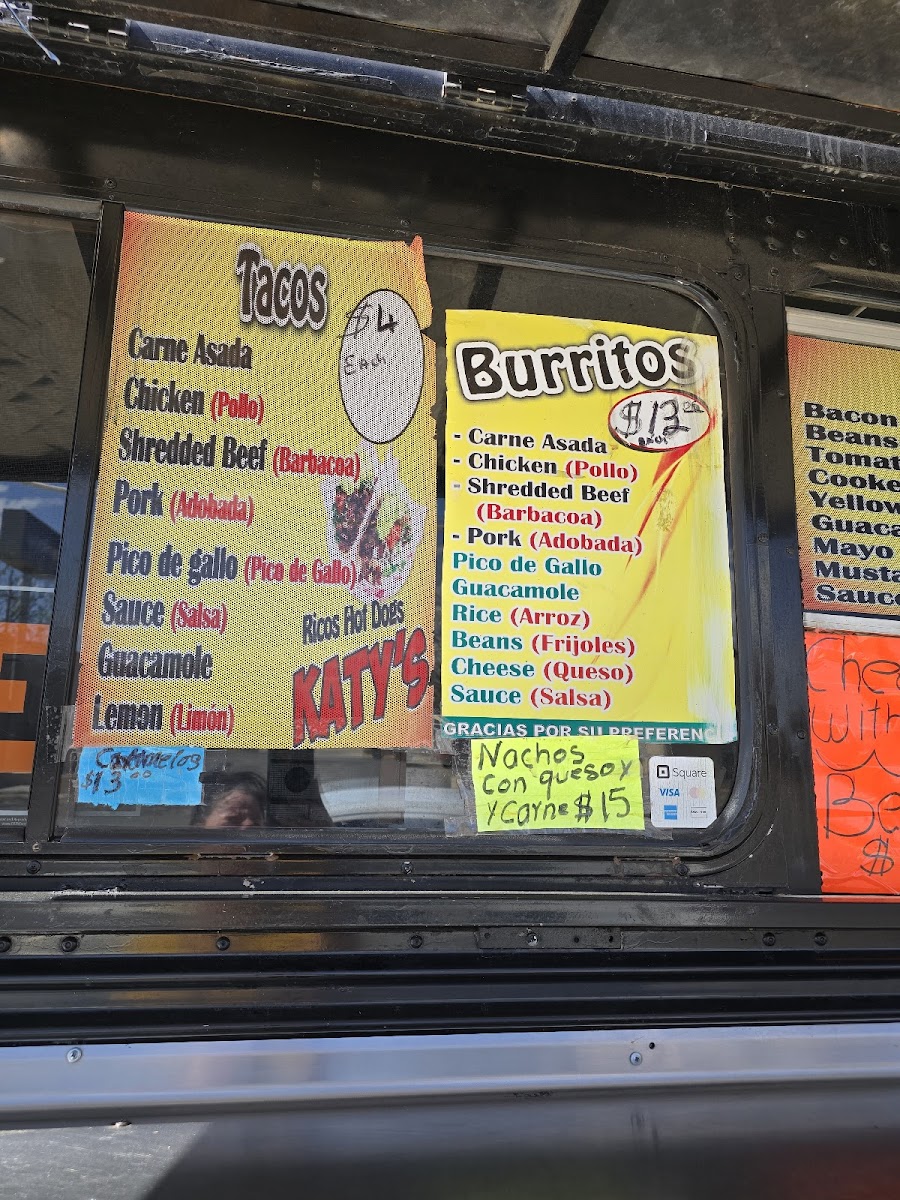 Tacos
$4
EACH
Carne Asada
Chicken (Pollo)
Shredded Beef (Barbacoa)
Pork (Adobada)
Pico de gallo (Pico de Gallo)
Sauce (Salsa)
Guacamole
Lemon (Limón)
Ricos Hot Dogs
KATY'S
$13.00
Burritos
$13.00
- Carne Asada
- Chicken (Pollo)
- Shredded Beef
(Barbacoa)
- Pork (Adobada)
Pico de Gallo
Guacamole
Rice (Arroz)
Beans (Frijoles)
Cheese (Queso)
Sauce (Salsa)
GRACIAS POR SU PREFERENC
Nachos
con queso y
y carne $15
Square
VISA
Bacon
Beans
Tomat
Cooke
Yellow
Guaca
Mayo
Musta
Sauce
Chee
with
Be
$